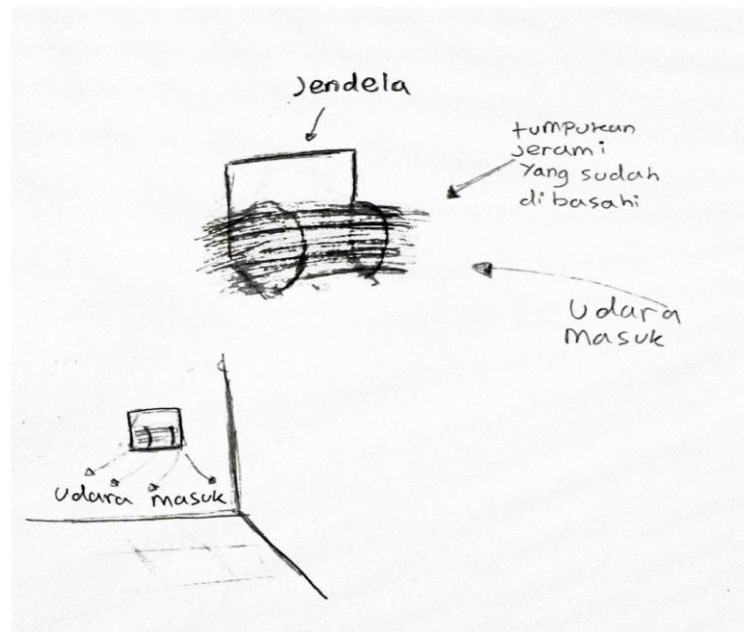 Jendela
tumpukan
jerami
yang sudah
dibasahi
Udara
Masuk
Udara masuk